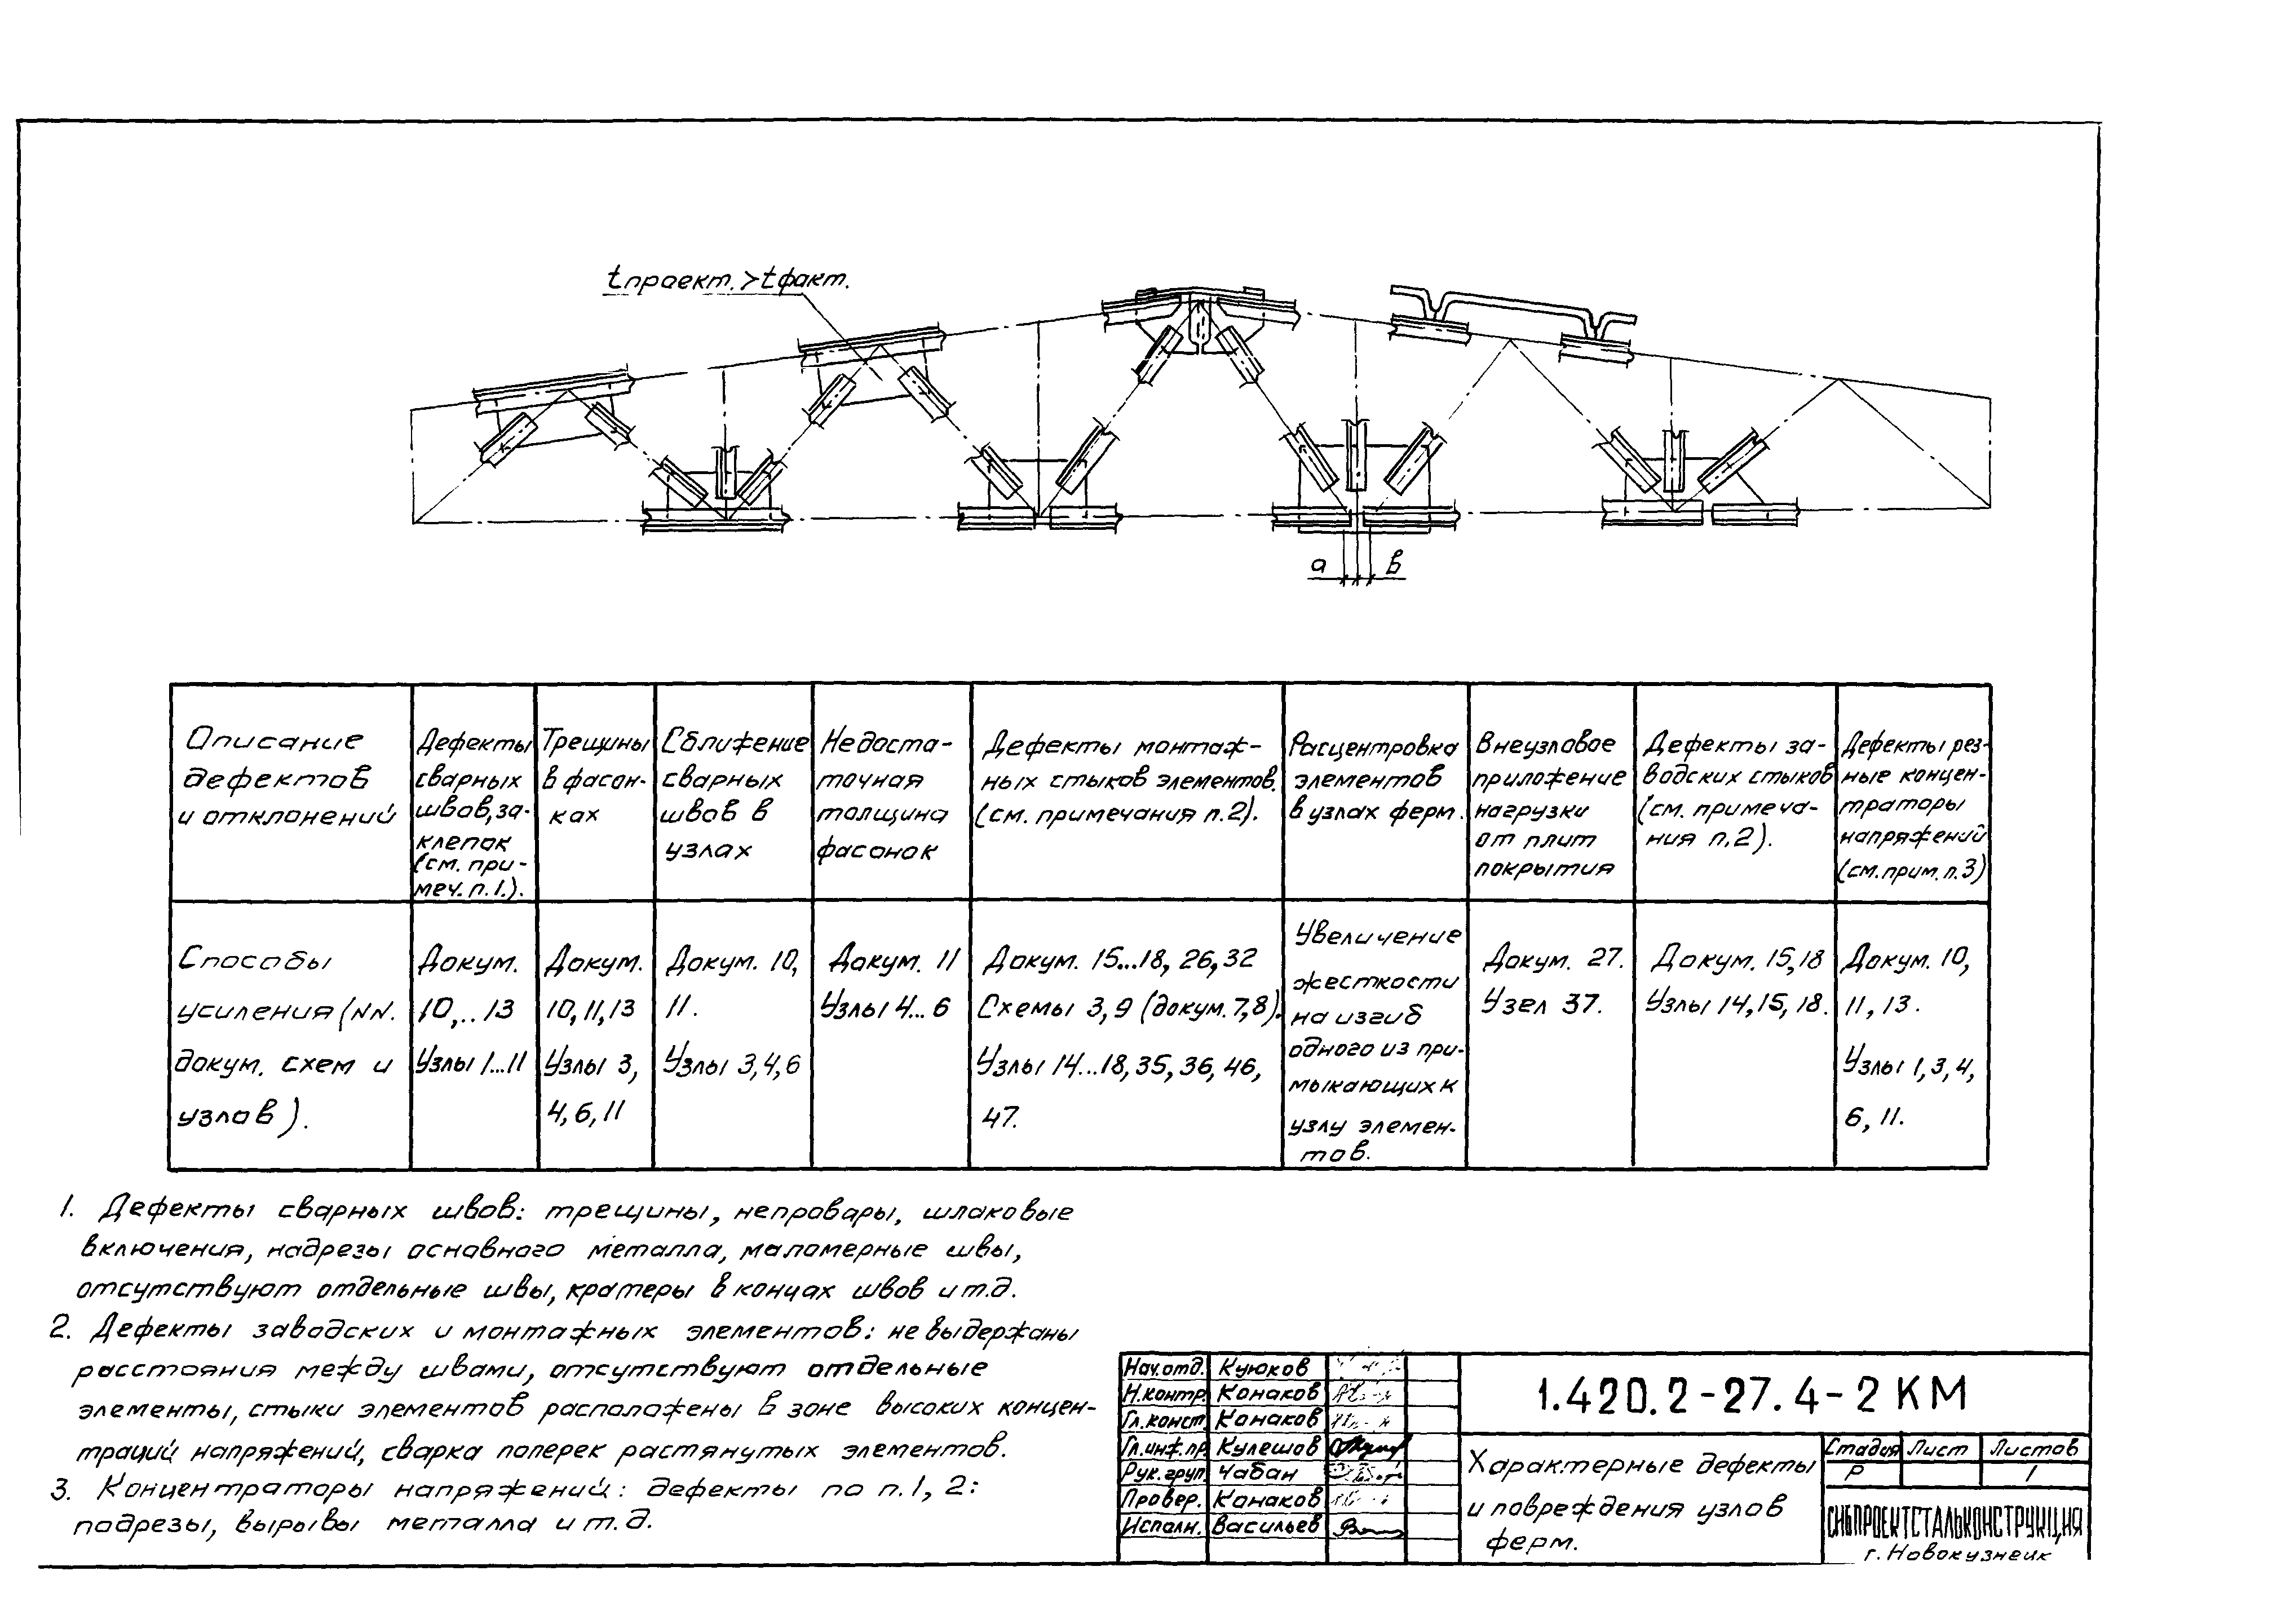 tпроект. > tфакт.
а в
Описание
дефектов
и отклонений
Дефекты
сварных
швов, за-
клепок
(см. при-
меч. п.1.).
Трещины
в фасон-
ках
Сближение
сварных
швов в
узлах
Недоста-
точная
толщина
фасонок
Дефекты монтаж-
ных стыков элементов.
(см. примечания п.2).
Расцентровка
элементов
в узлах ферм.
Внеузловое
приложение
нагрузки
от плит
покрытия
Дефекты за-
водских стыков
(см. примеча-
ния п.2).
Дефекты рез-
ные концен-
траторы
напряжений
(см. прим. п.3)
Способы
усиления (NN.
докум. схем и
узлов).
Докум.
10,..13
Узлы 1...11
Докум.
10, 11, 13
Узлы 3,
4, 6, 11
Докум. 10,
11.
Узлы 3,4,6
Докум. 11
Узлы 4...6
Докум. 15...18, 26, 32
Схемы 3, 9 (докум. 7,8).
Узлы 14...18, 35, 36, 46,
47.
Увеличение
жесткости
на изгиб
одного из при-
мыкающих к
узлу элемен-
тов.
Докум. 27.
Узел 37.
Докум. 15, 18
Узлы 14, 15, 18.
Докум. 10,
11, 13.
Узлы 1, 3, 4,
6, 11.
1. Дефекты сварных швов: трещины, непровары, шлаковые
включения, надрезы основного металла, маломерные швы,
отсутствуют отдельные швы, кратеры в концах швов и т.д.
2. Дефекты заводских и монтажных элементов: не выдержаны
расстояния между швами, отсутствуют отдельные
элементы, стыки элементов расположены в зоне высоких концен-
траций напряжений, сварка поперек растянутых элементов.
3. Концентраторы напряжений: дефекты по п.1, 2:
подрезы, вырывы металла и т.д.
Нач.отд. Куюков
Н.контр. Конаков
Гл.конст. Конаков
Гл.инж.пр. Кулешов
Рук.груп. Чабан
Провер. Конаков
Исполн. Васильев
1.420.2-27.4-2 КМ
Характерные дефекты
и повреждения узлов
ферм.
Стадия Лист Листов
Р 1
СИБПРОЕКТСТАЛЬКОНСТРУКЦИЯ
г. Новокузнецк